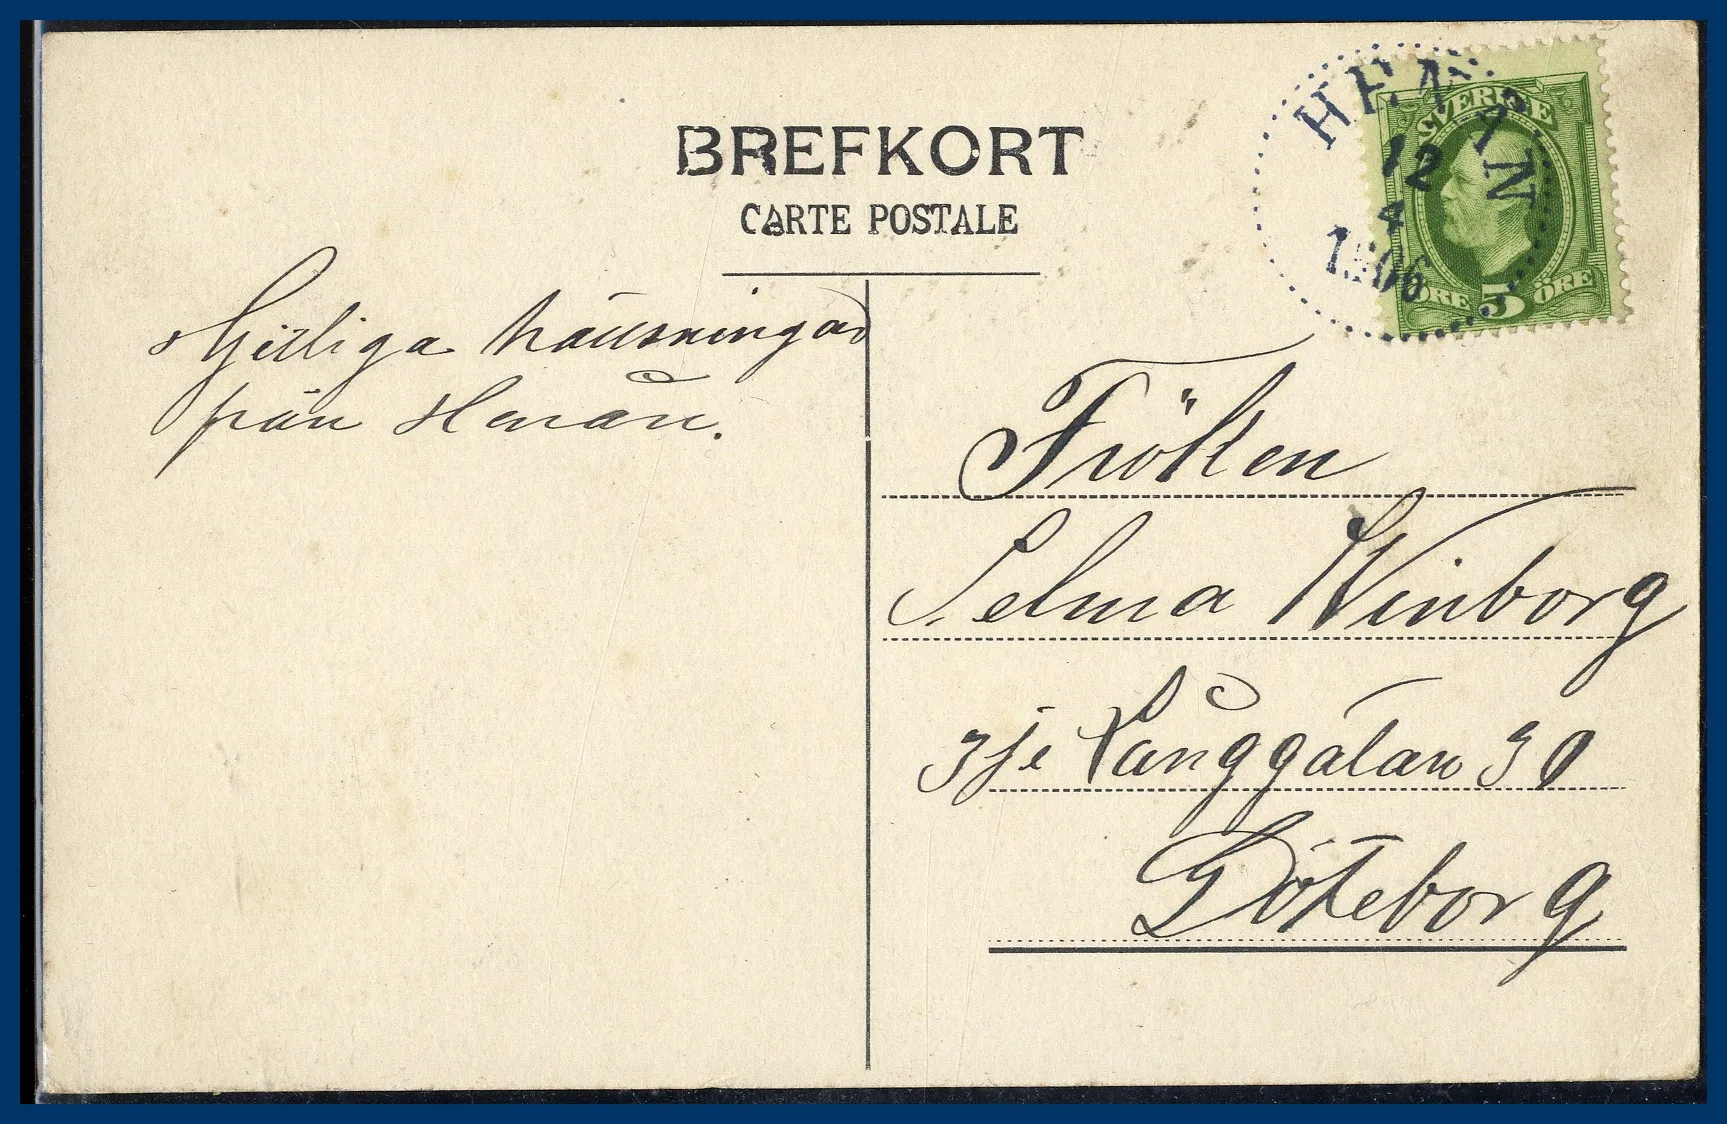 BREFKORT
CARTE POSTALE
HENÅN
12
4
1906
SVERIGE
ÖRE 5 ÖRE
Hjertliga hällsningar
från Henån.
Fröken
Selma Winborg
3je Långgatan 30
Göteborg